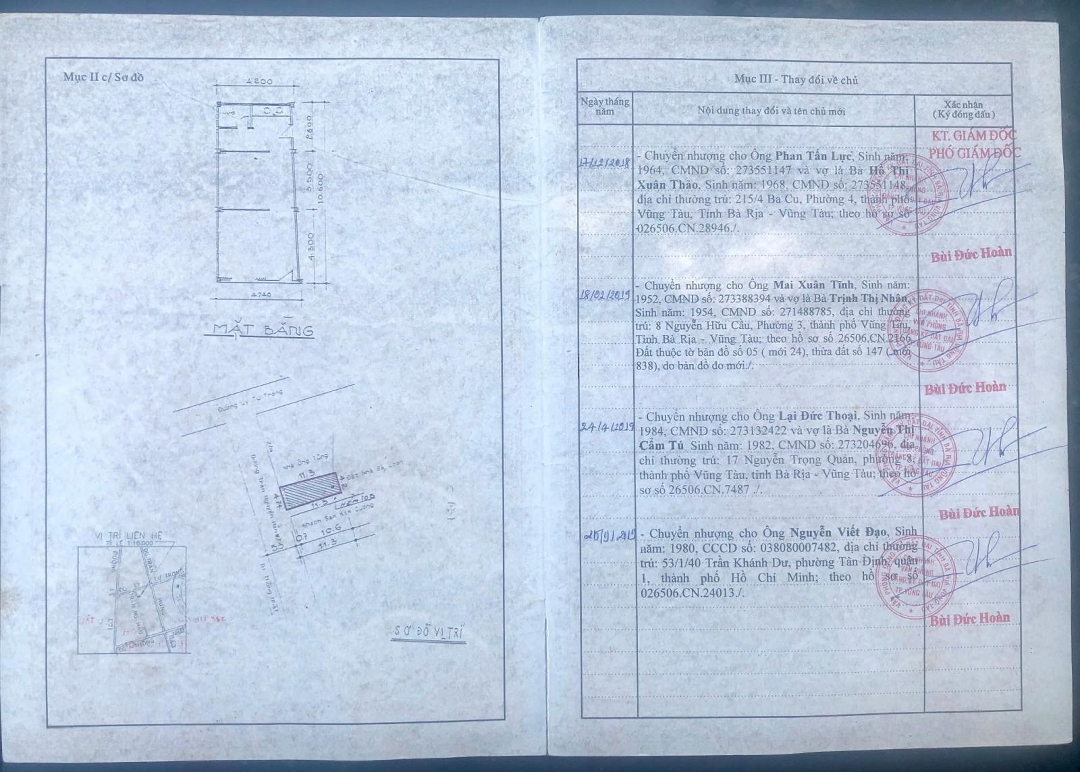 Mục II c/ Sơ đồ
4200
2800
5.000
10.600
4.300
4240
MẶT BẰNG
Nhà ông Tùng
11.3
4.24
11.3
HẺM
Khách Sạn Kim Cương
0.7 10.6
11.3
VỊ TRÍ LIÊN HỆ
TỶ LỆ 1:10.000
SƠ ĐỒ VỊ TRÍ
Mục III - Thay đổi về chủ
Ngày tháng năm
Nội dung thay đổi và tên chủ mới
Xác nhận
( Ký đóng dấu )
KT. GIÁM ĐỐC
PHÓ GIÁM ĐỐC
17/12/2018
- Chuyển nhượng cho Ông Phan Tấn Lực, Sinh năm:
1964, CMND số: 273551147 và vợ là Bà Hồ Thị
Xuân Thảo, Sinh năm: 1968, CMND số: 273551148,
địa chỉ thường trú: 215/4 Ba Cu, Phường 4, thành phố
Vũng Tàu, Tỉnh Bà Rịa - Vũng Tàu; theo hồ sơ số
026506.CN.28946./.
Bùi Đức Hoàn
18/02/2019
- Chuyển nhượng cho Ông Mai Xuân Tính, Sinh năm:
1952, CMND số: 273388394 và vợ là Bà Trịnh Thị Nhân,
Sinh năm: 1954, CMND số: 271488785, địa chỉ thường
trú: 8 Nguyễn Hữu Cầu, Phường 3, thành phố Vũng Tàu,
Tỉnh Bà Rịa - Vũng Tàu; theo hồ sơ số 26506.CN.2166.
Đất thuộc tờ bản đồ số 05 ( mới 24), thửa đất số 147 ( mới
838), do bản đồ đo mới./.
Bùi Đức Hoàn
24/4/2019
- Chuyển nhượng cho Ông Lại Đức Thoại, Sinh năm:
1984, CMND số: 273132422 và vợ là Bà Nguyễn Thị
Cẩm Tú Sinh năm: 1982, CMND số: 273204696, địa
chỉ thường trú: 17 Nguyễn Trọng Quản, phường 8,
thành phố Vũng Tàu, tỉnh Bà Rịa - Vũng Tàu; theo hồ
sơ số 26506.CN.7487 ./.
Bùi Đức Hoàn
- Chuyển nhượng cho Ông Nguyễn Viết Đạo, Sinh
năm: 1980, CCCD số: 038080007482, địa chỉ thường
trú: 53/1/40 Trần Khánh Dư, phường Tân Định, quận
1, thành phố Hồ Chí Minh; theo hồ sơ số
026506.CN.24013./.
Bùi Đức Hoàn